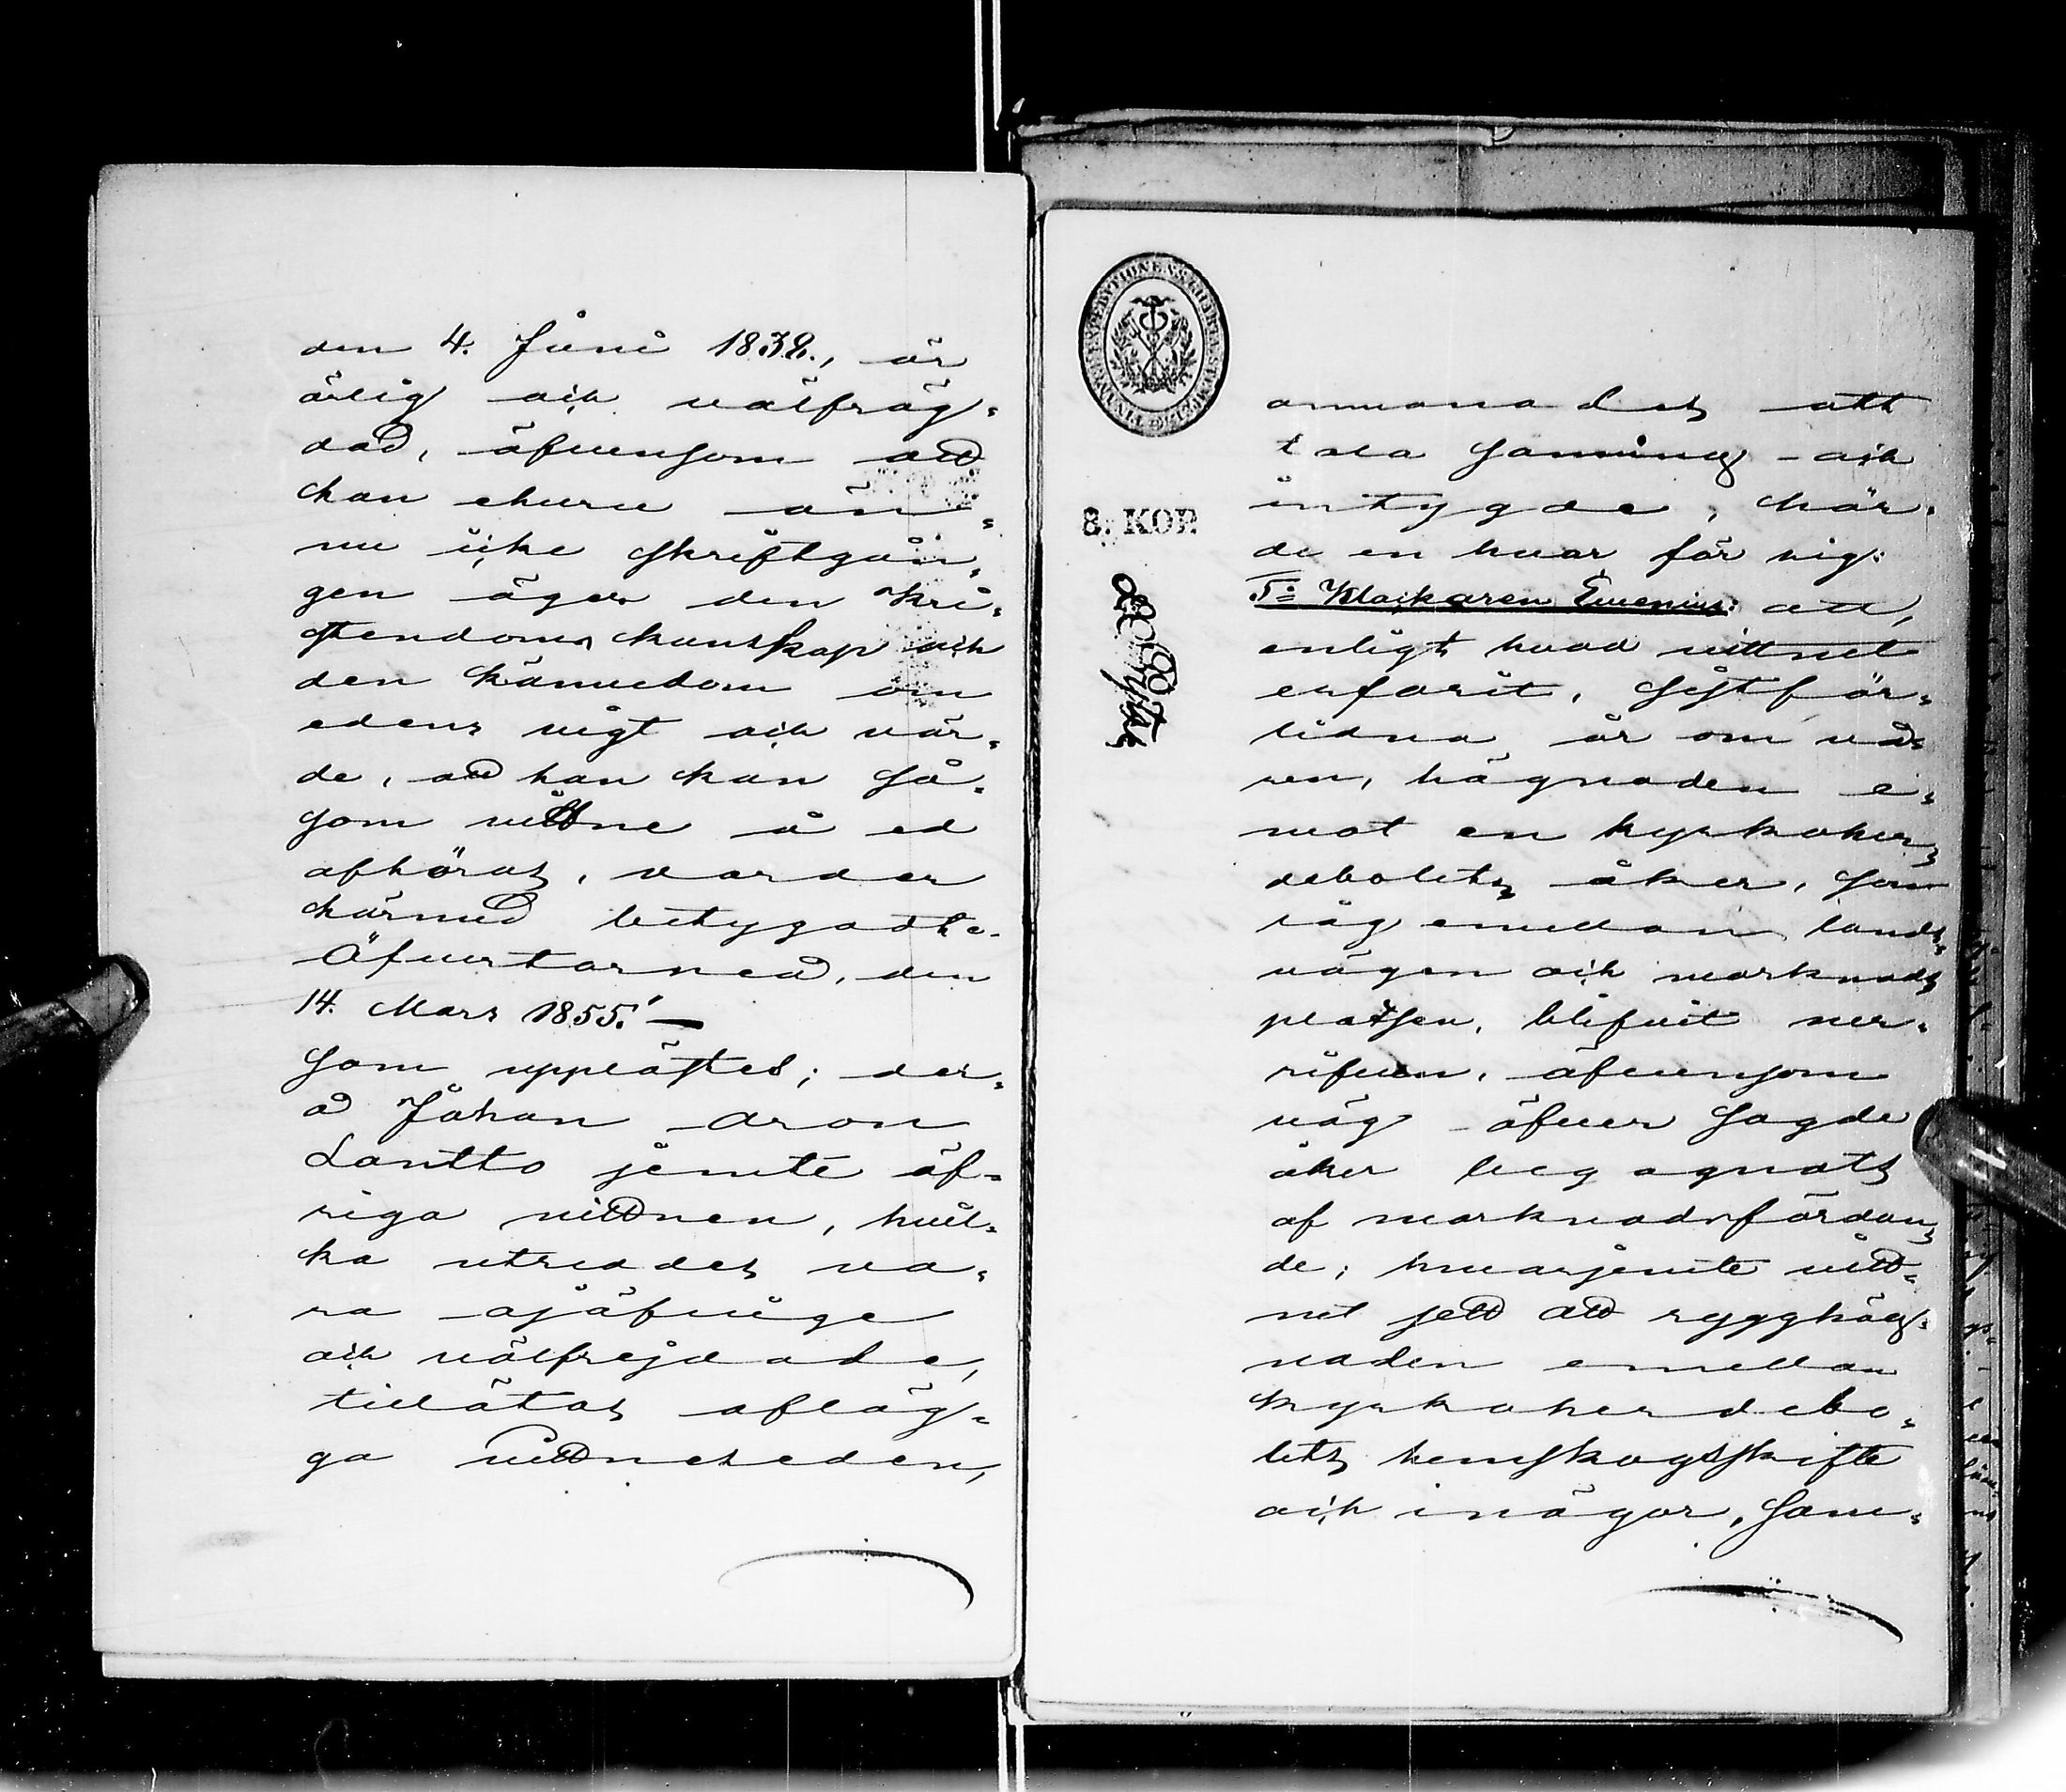 den 4. Juni 1838., är
ärlig och välfräg-
dad, äfvensom att
han ehuru än-
nu icke skriftgån-
gen äger den kri-
stendoms kunskap och
den kännedom om
edens vigt och vär-
de, att han kan så-
som vittne å ed
afhöras, varder
härmed betygadt.
Öfvertorneå, den
14. Mars 1855.' —
som upplästes; der-
å Johan Aron
Lantto jemte öf-
riga vittnen, hvil-
ka utreddes va-
ra ojäfvige
och välfrejdade,
tillätos afläg-
ga vittneseden,
8. KOP.
annanades att
tala sanning och
intygde, hör-
de en hvar för sig:
1o Klockaren Svenius: att,
enligt hvad vittnet
erfarit, sistför-
lidna år om vå-
ren, hägnaden e-
mot en kyrkoher-
debolets åker, som
låg emellan lands-
vägen och marknads
platsen, blifvit ner-
rifven, äfvensom
väg öfver sagde
åker begagnats
af marknadsfaran-
de; hvarjemte vitt-
net sett att rygghäg-
naden emellan
kyrkoherdebo-
lets hemskogsskifte
och inägor, sam-